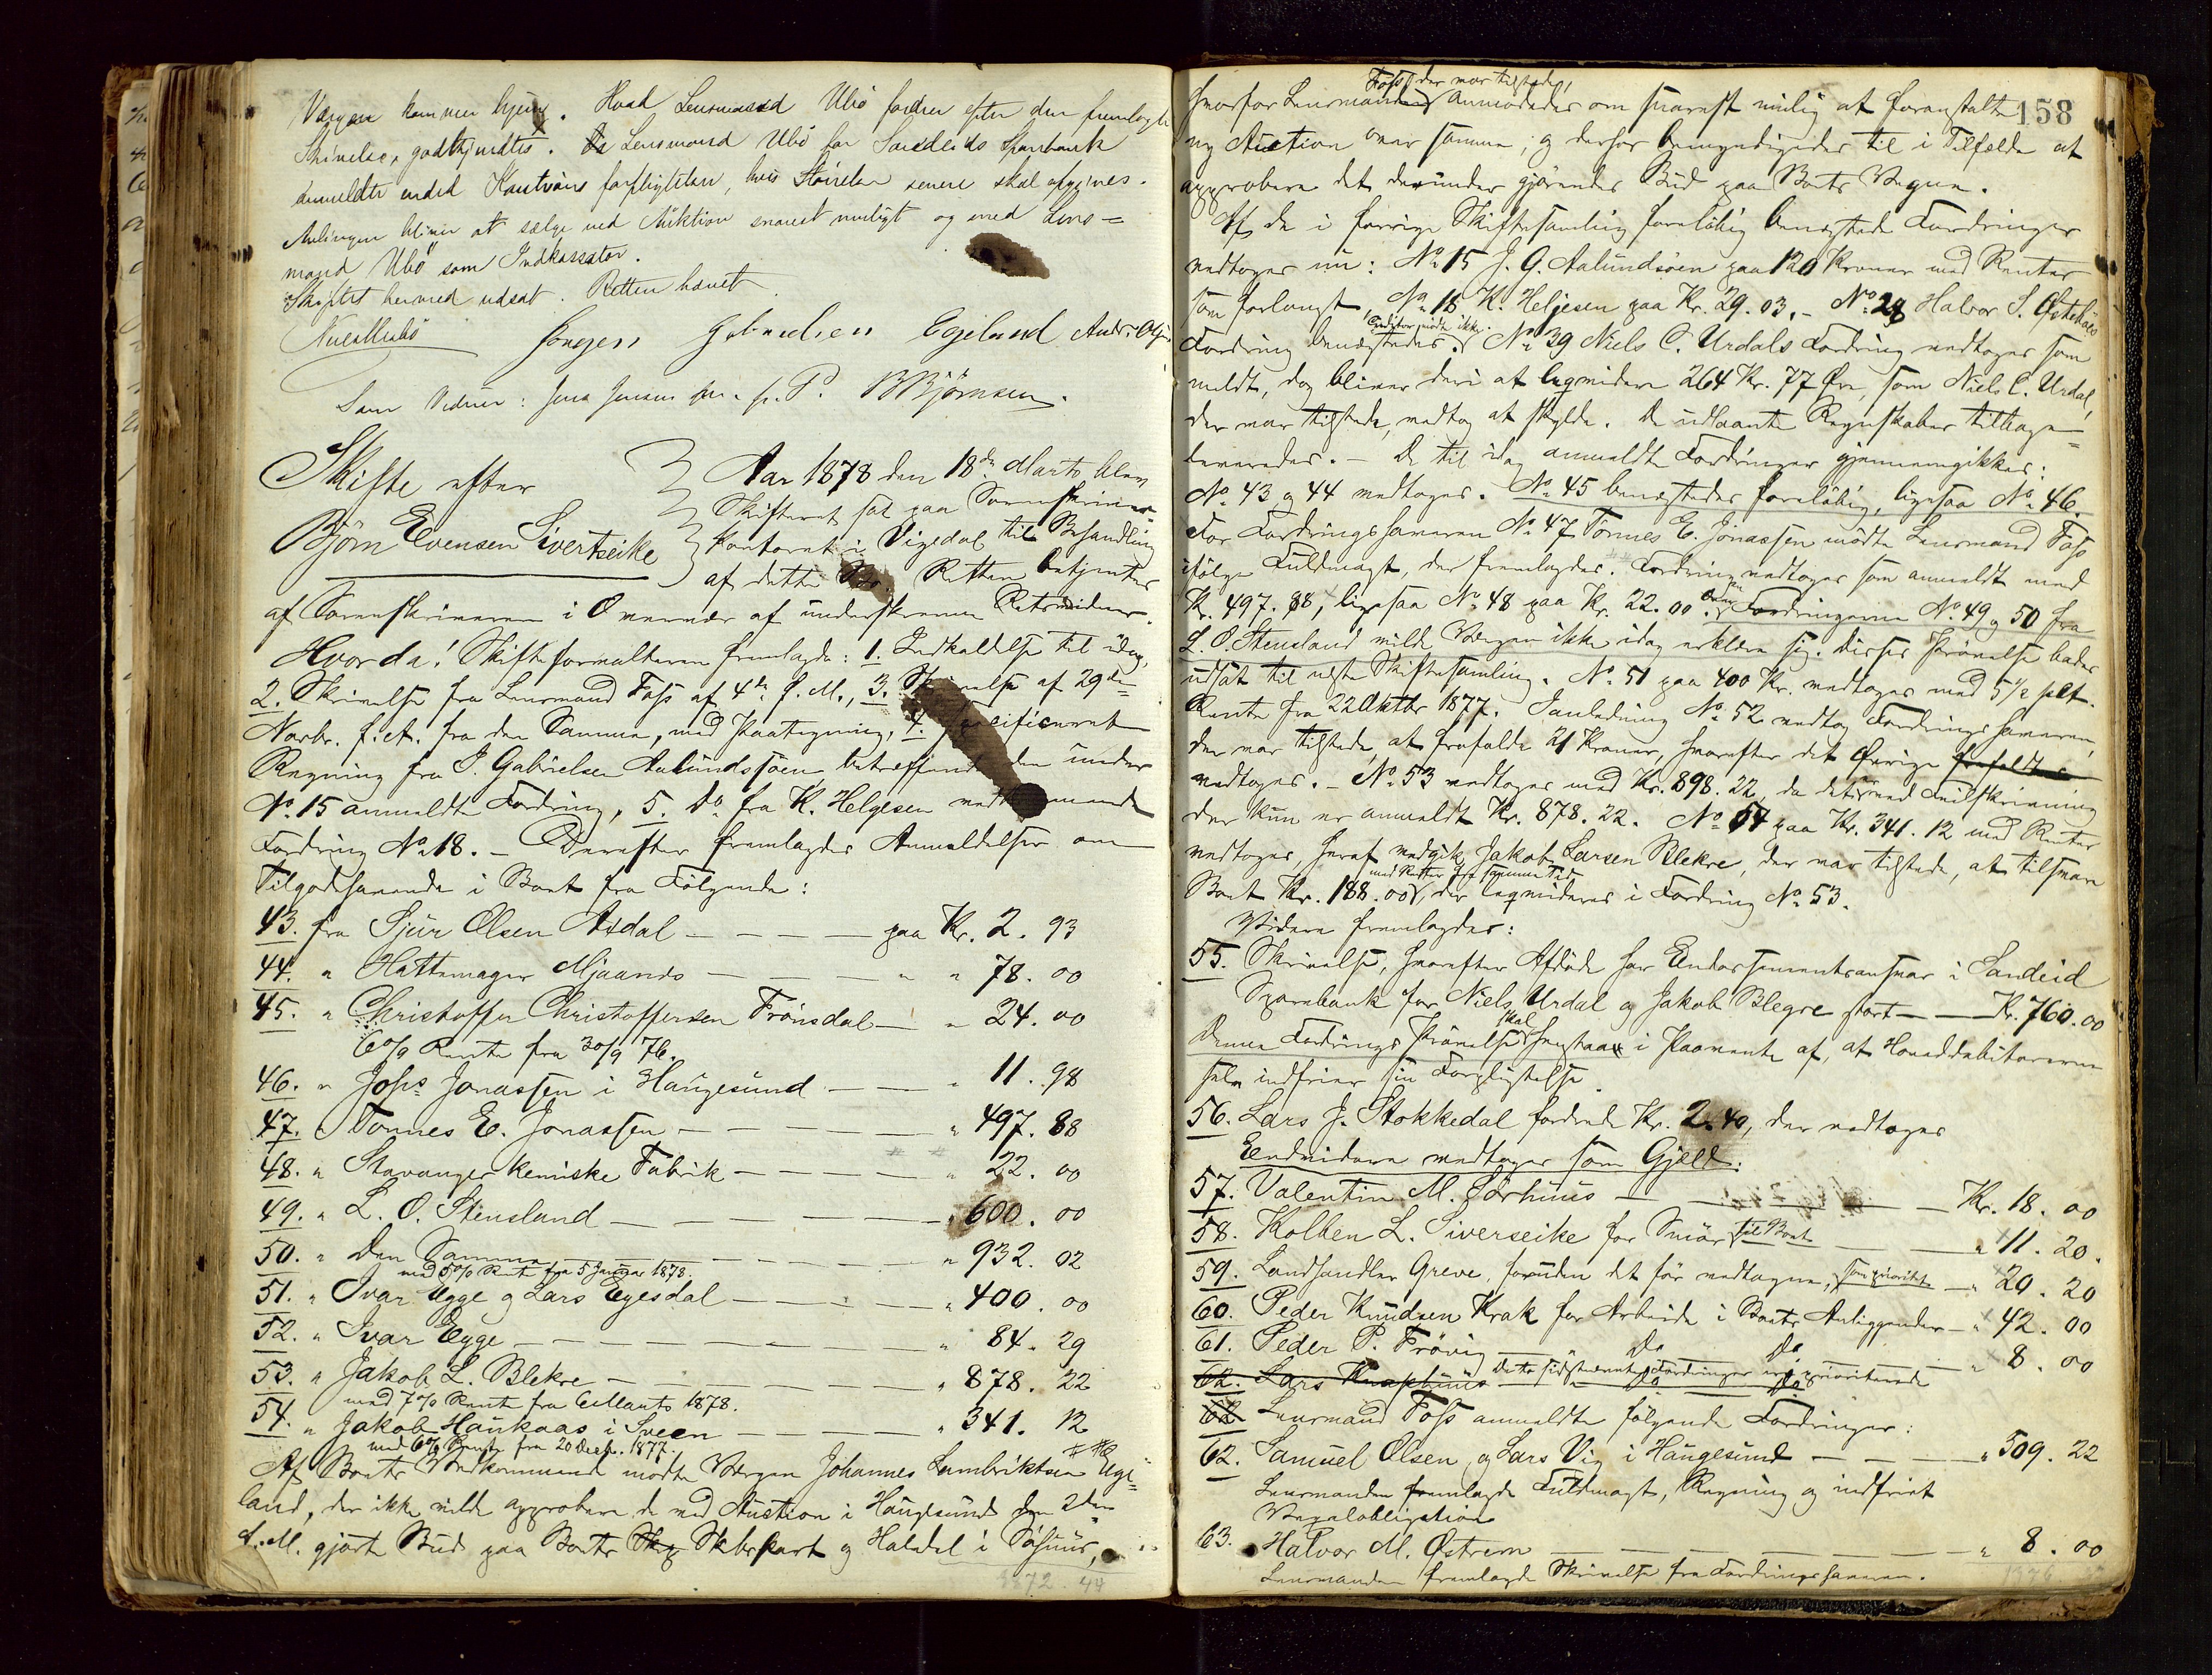 Værgen kommer hjem. Hvad Lensmand Ubö fordrer efter den fremlagte
Skrivelse, godkjendtes. Da Lensmand Ubö for Sandeids Sparebank
anmeldte endel Kautions forpligtelser, hvis Störrelse senere skal opgives.
Avlingen bliver at sælge ved Auktion snarest muligt og med Lens=
mand Ubö som Indkassator.
Skiftet hermed udsat. Retten hævet
Jörgen Gabrielsen Egeland
Som Vidner: Jens Jensen P. BBjörnsen.
Skifte efter
Björn Evensen Sivertseike
Aar 1878 den 18de Marts blev
Skifteret sat paa Sorenskriver=
kontoret i Vigedal til Behandling
af dette Bo. Retten betjentes
af Sorenskriveren i Overvær af underskrevne Retsvidner.
Hvorda! Skifteforvalteren fremlagde: 1. Indkaldelse til idag,
2. Skrivelse fra Lensmand Foss af 4de f. M., 3. Skrivelse af 29de
Novbr. f. A. fra den Samme, med Paategning, 4. specificeret
Regning fra J. Gabrielsen Aalundssøen betreffende den under
No 15 anmeldte Fordring, 5. Do fra K. Helgesen vedkommende
Fordring No 18. – Derefter fremlagdes Anmeldelser om
Tilgodehavende i Boet fra Følgende:
43. fra Sjur Olsen Asdal — — — paa Kr. 2. 93
44. " Hattemager Mjaanes — — " " 78. 00
45. " Christoffer Christoffersen Frönsdal — " 24. 00
6 o/o Rente fra 30/9 76.
46. " Johs Jonassen i Haugesund — — " 11. 98
47. " Tönnes E. Jonassen — — — " 497. 88
48. " Stavanger kemiske Fabrik — — — " 22. 00
49. " L. O. Stensland — — — — " 600. 00
50. " Den Samme — — — — " 932. 02
med 5 o/o Rente fra 5 Januar 1878.
51. " Ivar Egge og Lars Egesdal — — — " 400. 00
52. " Ivar Egge — — — — " 84. 29
53. " Jakob L. Blekre — — — — " 878. 22
med 7 o/o Rente fra Marts 1878.
54. " Jakob Haukaas i Sveen — — — " 341. 12
med 6 o/o Rente fra 20 Decb. 1877.
Af Boets Vedkommende mødte Værgen Johannes Lambriktsen Uge=
land, der ikke vilde approbere de ved Auction i Haugesund den 2den
d. M. gjorte Bud paa Boets Skibspart og Halvdel i Söhuus,
158
Foss, der var tilstede,
hvorfor Lensmanden anmodedes om snarest mulig at foranstalte
ny Auction over samme, og derhos bemyndigedes til i Tilfælde at
approbere det derunder gjörendes Bud paa Boets Vegne.
Af de i forrige Skiftesamling foreløbig benægtede Fordringer
vedtoges nu: No 15 J. G. Aalundsöen paa 120 Kroner med Renter
som forlangt, No 18 K. Helgesen paa Kr. 29. 03. – No 29 Halvor S. Østebøes
Creditor mødte ikke.
Fordring benægtedes. No 39 Niels C. Urdals Fordring vedtoges som
meldt, dog bliver deri at liqvidere 264 Kr. 77 Øre, som Niels C. Urdal,
der var tilstede, vedtog at skylde. De udlaante Regnskaber tilbage=
leveredes. – De til idag anmeldte Fordringer gjennemgikkes:
No 43 og 44 vedtoges. No 45 benægtedes foreløbig, ligesaa No 46.
For Fordringshaveren No 47 Tönnes E. Jonassen mødte Lensmand Foss
ifølge Fuldmagt, der fremlagdes. Fordring vedtoges som anmeldt med
Kr. 497. 88, ligesaa No 48 paa Kr. 22. 00. Fordringerne No 49 og 50 fra
L. O. Stensland vilde Værgen ikke idag erklære sig. Disses Prövelse bades
udsat til næste Skiftesamling. No 51 paa 400 Kr. vedtoges med 5 1/2 pCt.
Rente fra 22 Oktbr 1877. I anledning No 52 vedtog Fordringshaveren,
der var tilstede, at frafalde 21 Kroner, hvorefter det Øvrige frafaldtes
vedtoges. – No 53 vedtoges med Kr. 898. 22, da det er ved Feilskrivning
der kun er anmeldt Kr. 878. 22. No 54 paa Kr. 341. 12 med Renter
vedtoges, heraf vedgik Jakob Larsen Blekre, der var tilstede, at tilsvare
med Renter fra samme Tid
Boet Kr. 188. 00, der liqvideres i Fordring No 53.
Videre fremlagdes:
55. Skrivelse, hvorefter Afdøde har Endossementsansvar i Sandeid
Sparebank for Niels Urdal og Jakob Blegre stort — — Kr. 760. 00
Denne Fordrings Prövelse skal henstaa i Paavente af, at Hoveddebitorerne
selv indfrier sin Forpligtelse.
56. Lars J. Stokkedal fordrede Kr. 2. 40, der vedtoges
Endvidere vedtoges som Gjæld:
57. Valentin M. Sörhuus — — — Kr. 18. 00
58. Kolben L. Siverseike for Smör til Boet — — " 11. 20.
59. Landhandler Greve, foruden det før vedtagne, som prioritet — " 20. 20
60. Peder Knudsen Krak for Arbeide i Boets Anliggender — " 42. 00
61. Peder P. Frövig — " Do Do — " 8. 00
De to sidstnævnte Fordringer er prioriterede
62. Lars Knaphuus — " Do Do
62 Lensmand Foss anmeldte følgende Fordringer:
62. Samuel Olsen og Lars Vig i Haugesund — — — " 509. 22
Lensmanden fremlagde Fuldmagt, Regning og indfriet
Vexelobligation
63. Halvor M. Østrem — — — — " 8. 00
Lensmanden fremlagde Skrivelse fra Fordringshaveren.